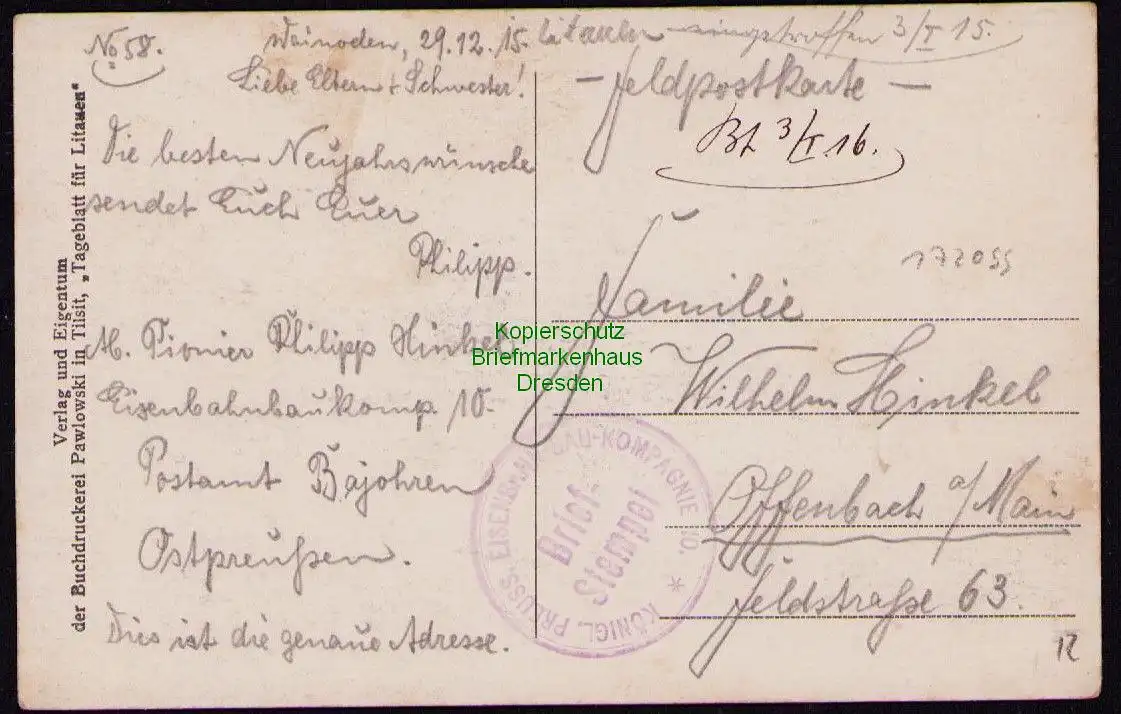 No 58.
Wainoden, 29.12.15. Litauen eingetroffen 3/I 15.
Liebe Eltern + Schwester!
Die besten Neujahrswünsche
sendet Euch Euer
Philipp.
A. Pionier Philipp Hinkel
Eisenbahnbaukomp. 10.
Postamt Bajohren
Ostpreußen.
Dies ist die genaue Adresse.
Verlag und Eigentum
der Buchdruckerei Pawlowski in Tilsit, „Tageblatt für Litauen"
- Feldpostkarte -
3/I.16.
172055
Familie
Wilhelm Hinkel
Offenbach a/Main
Feldstraße 63.
12
Kopierschutz
Briefmarkenhaus
Dresden
KÖNIGL. PREUSS. EISENBAHN-BAU-KOMPAGNIE 10. *
Brief-
Stempel